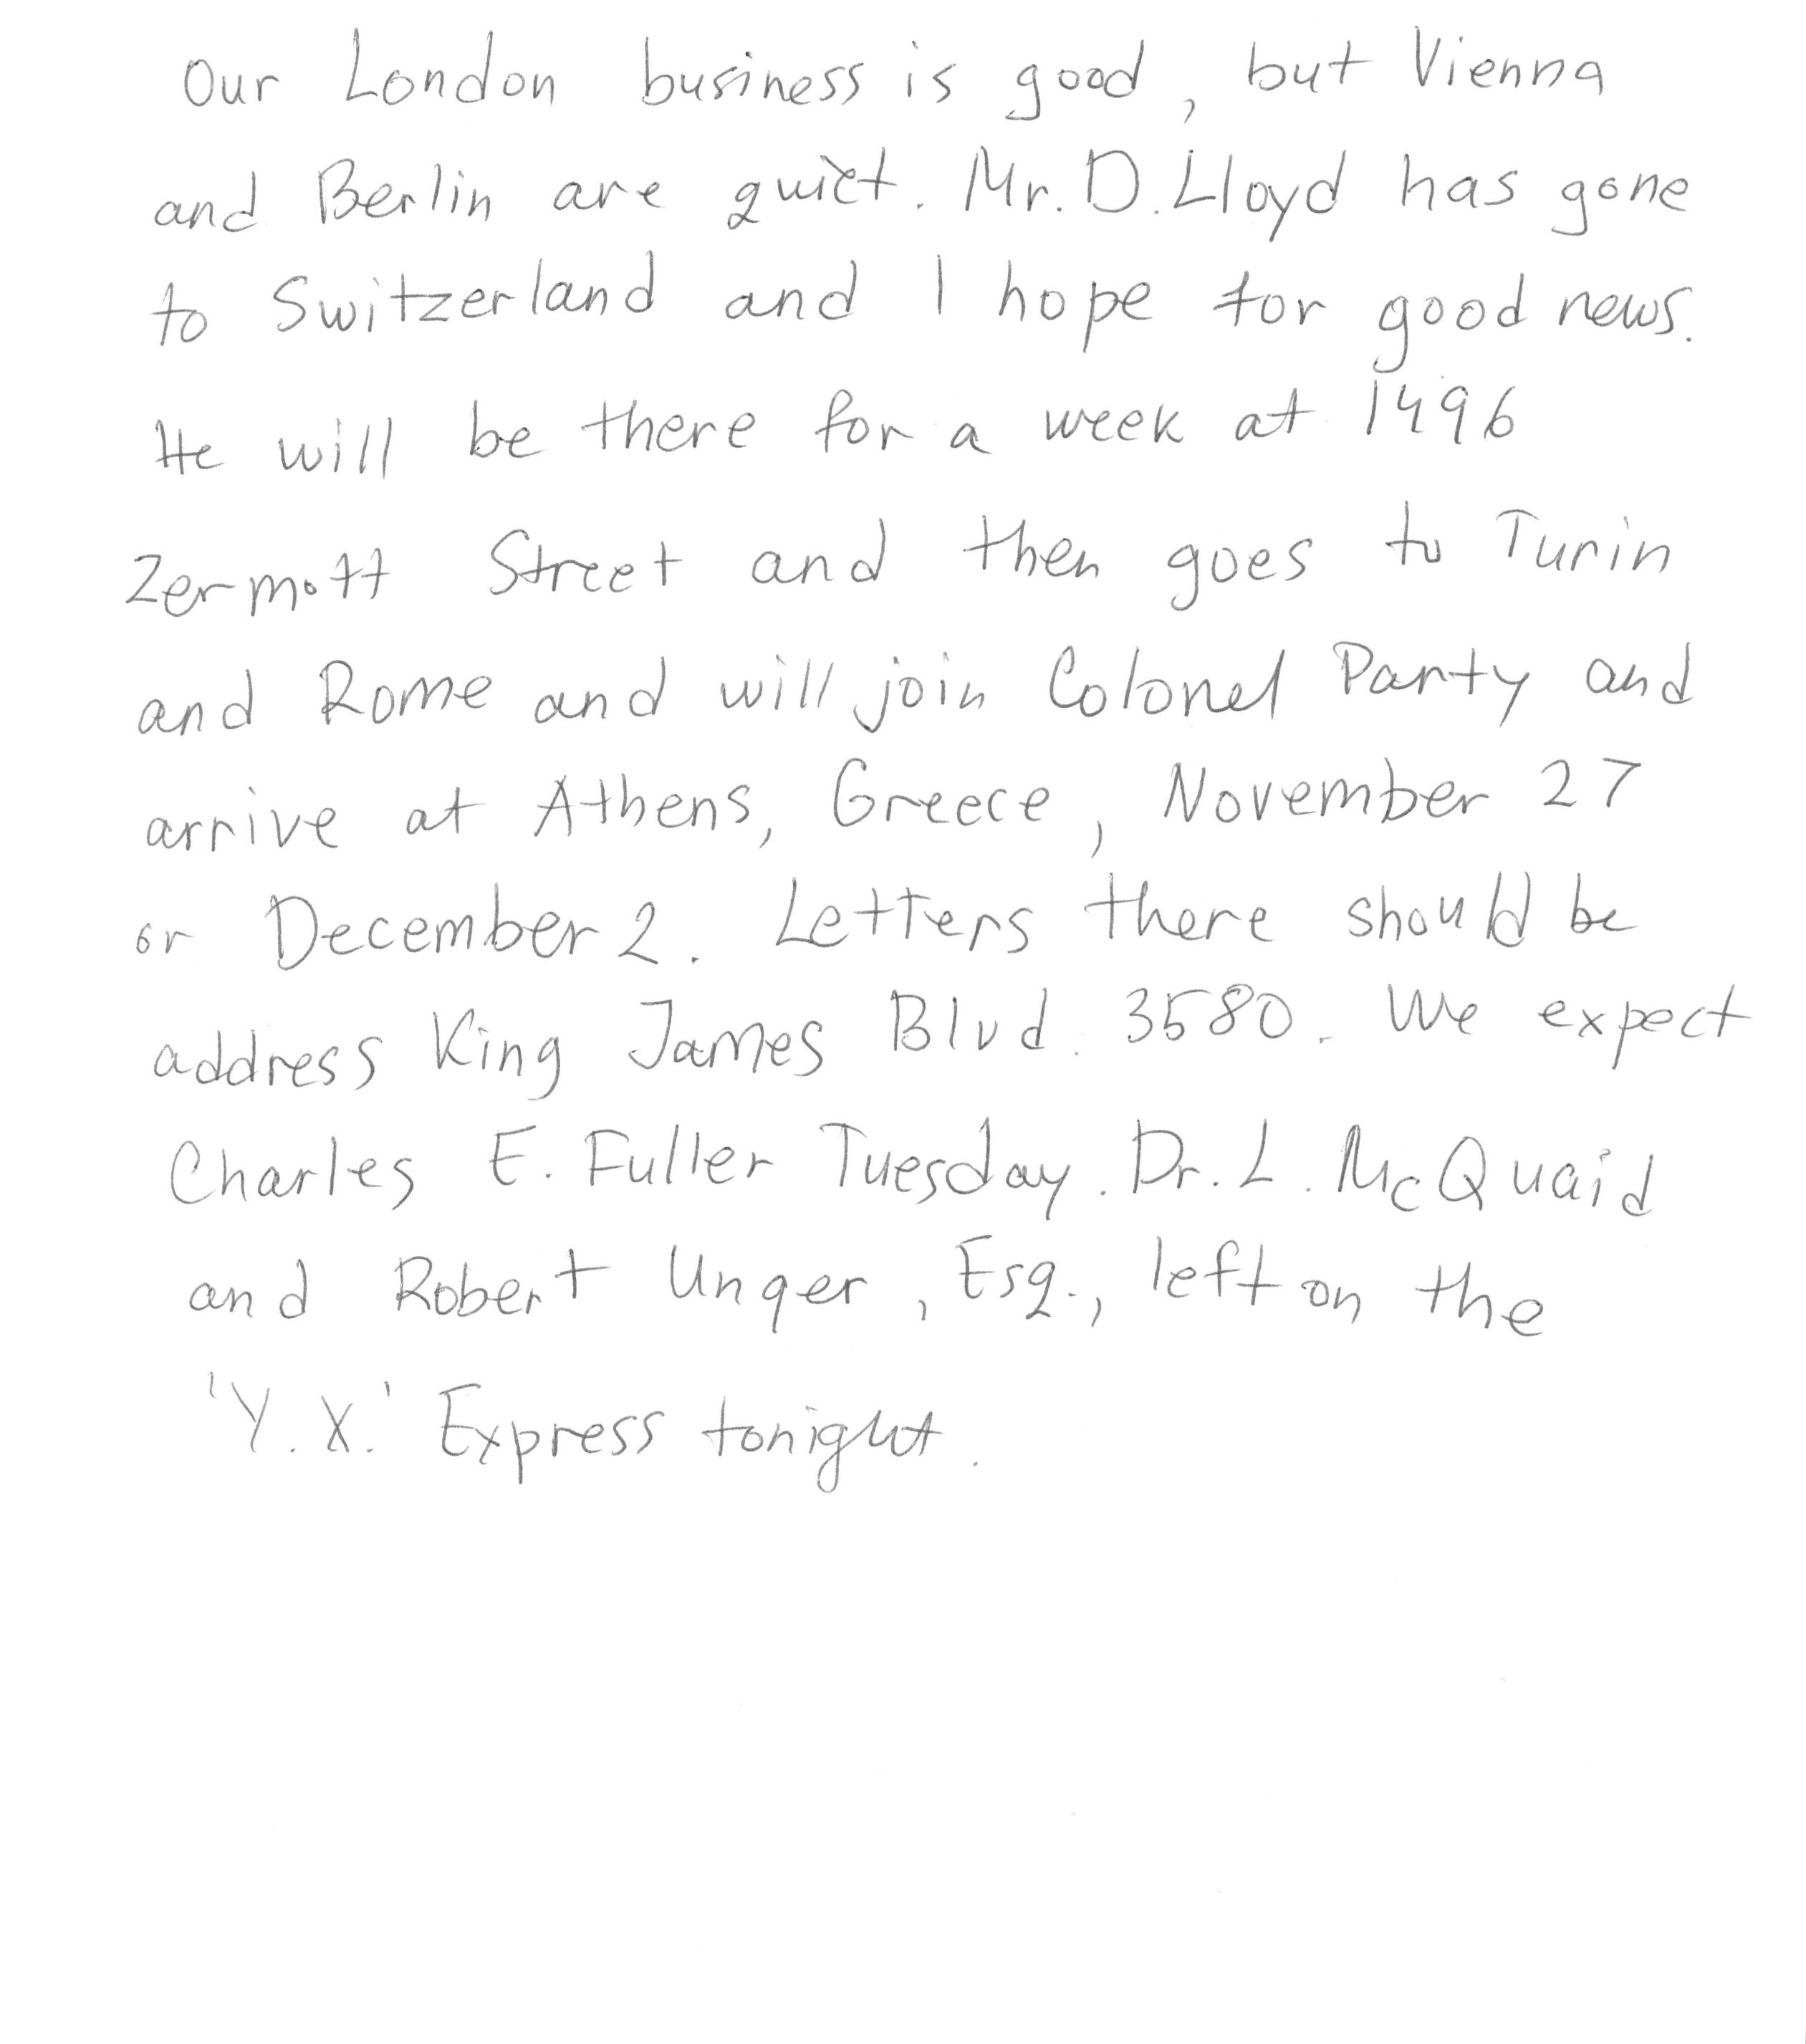 Our London business is good, but Vienna
and Berlin are quiet. Mr. D. Lloyd has gone
to Switzerland and I hope for good news.
He will be there for a week at 1496
Zermott Street and then goes to Turin
and Rome and will join Colonel Party and
arrive at Athens, Greece, November 27
or December 2. Letters there should be
address King James Blvd. 3580. We expect
Charles E. Fuller Tuesday. Dr. L. McQuaid
and Robert Unger, Esq., left on the
'Y.X.' Express tonight.